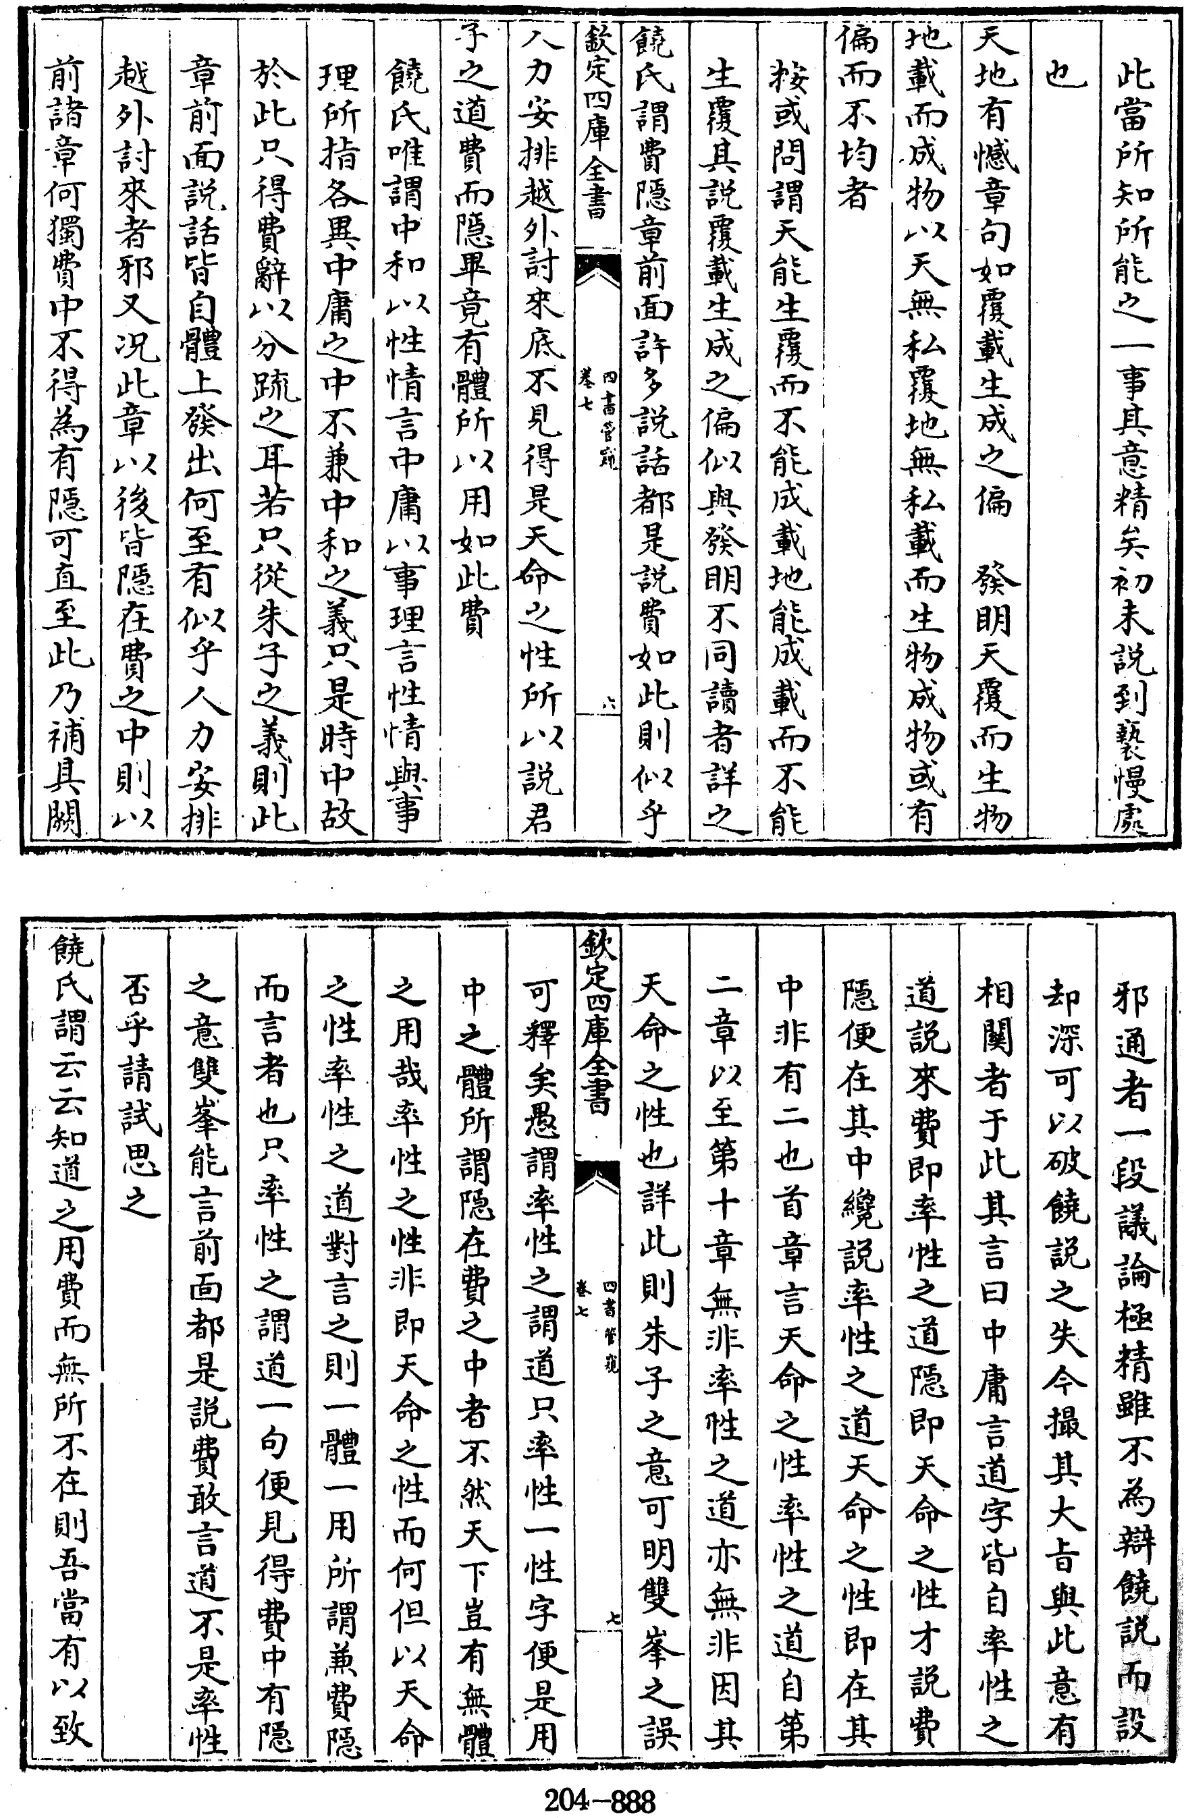 此當所知所能之一事其意精矣初未說到褻慢處
也
天地有憾章句如覆載生成之偏　發明天覆而生物
地載而成物以天無私覆地無私載而生物成物或有
偏而不均者
按或問謂天能生覆而不能成載地能成載而不能
生覆其説覆載生成之偏似與發明不同讀者詳之
饒氏謂費隱章前面許多説話都是説費如此則似乎
欽定四庫全書
四書管窺
卷七
六
人力安排越外討來底不見得是天命之性所以説君
子之道費而隱畢竟有體所以用如此費
饒氏唯謂中和以性情言中庸以事理言性情與事
理所指各異中庸之中不兼中和之義只是時中故
於此只得費辭以分疏之耳若只從朱子之義則此
章前面説話皆自體上發出何至有似乎人力安排
越外討來者邪又況此章以後皆隱在費之中則以
前諸章何獨費中不得為有隱可直至此乃補其闕
邪通者一段議論極精雖不為辯饒説而設
却深可以破饒説之失今撮其大旨與此意有
相關者于此其言曰中庸言道字皆自率性之
道説來費即率性之道隱即天命之性才説費
隱便在其中纔説率性之道天命之性即在其
中非有二也首章言天命之性率性之道自第
二章以至第十章無非率性之道亦無非因其
天命之性也詳此則朱子之意可明雙峯之誤
欽定四庫全書
四書管窺
卷七
七
可釋矣愚謂率性之謂道只率性一性字便是用
中之體所謂隱在費之中者不然天下豈有無體
之用哉率性之性非即天命之性而何但以天命
之性率性之道對言之則一體一用所謂兼費隱
而言者也只率性之謂道一句便見得費中有隱
之意雙峯能言前面都是説費敢言道不是率性
否乎請試思之
饒氏謂云云知道之用費而無所不在則吾當有以致
204-888